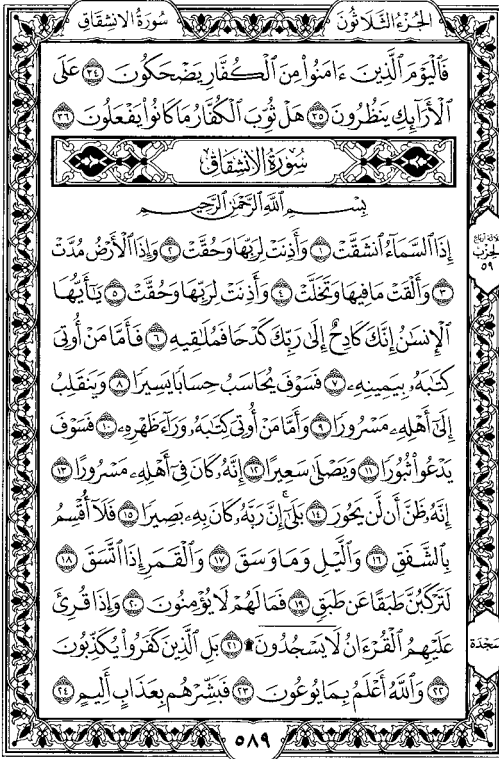 الجُزْءُ الثَّلَاثُونَ سُورَةُ الانشِقَاقِ
فَٱلْيَوْمَ ٱلَّذِينَ ءَامَنُوا۟ مِنَ ٱلْكُفَّارِ يَضْحَكُونَ ٣٤ عَلَى
ٱلْأَرَآئِكِ يَنظُرُونَ ٣٥ هَلْ ثُوِّبَ ٱلْكُفَّارُ مَا كَانُوا۟ يَفْعَلُونَ ٣٦
سُورَةُ الانشِقَاقِ
بِسْمِ ٱللَّهِ ٱلرَّحْمَٰنِ ٱلرَّحِيمِ
إِذَا ٱلسَّمَآءُ ٱنشَقَّتْ ١ وَأَذِنَتْ لِرَبِّهَا وَحُقَّتْ ٢ وَإِذَا ٱلْأَرْضُ مُدَّتْ
٣ وَأَلْقَتْ مَا فِيهَا وَتَخَلَّتْ ٤ وَأَذِنَتْ لِرَبِّهَا وَحُقَّتْ ٥ يَٰٓأَيُّهَا
ٱلْإِنسَٰنُ إِنَّكَ كَادِحٌ إِلَىٰ رَبِّكَ كَدْحًا فَمُلَٰقِيهِ ٦ فَأَمَّا مَنْ أُوتِىَ
كِتَٰبَهُۥ بِيَمِينِهِۦ ٧ فَسَوْفَ يُحَاسَبُ حِسَابًا يَسِيرًا ٨ وَيَنقَلِبُ
إِلَىٰٓ أَهْلِهِۦ مَسْرُورًا ٩ وَأَمَّا مَنْ أُوتِىَ كِتَٰبَهُۥ وَرَآءَ ظَهْرِهِۦ ١٠ فَسَوْفَ
يَدْعُوا۟ ثُبُورًا ١١ وَيَصْلَىٰ سَعِيرًا ١٢ إِنَّهُۥ كَانَ فِىٓ أَهْلِهِۦ مَسْرُورًا ١٣
إِنَّهُۥ ظَنَّ أَن لَّن يَحُورَ ١٤ بَلَىٰٓ إِنَّ رَبَّهُۥ كَانَ بِهِۦ بَصِيرًا ١٥ فَلَآ أُقْسِمُ
بِٱلشَّفَقِ ١٦ وَٱلَّيْلِ وَمَا وَسَقَ ١٧ وَٱلْقَمَرِ إِذَا ٱتَّسَقَ ١٨
لَتَرْكَبُنَّ طَبَقًا عَن طَبَقٍ ١٩ فَمَا لَهُمْ لَا يُؤْمِنُونَ ٢٠ وَإِذَا قُرِئَ
عَلَيْهِمُ ٱلْقُرْءَانُ لَا يَسْجُدُونَ ۩ ٢١ بَلِ ٱلَّذِينَ كَفَرُوا۟ يُكَذِّبُونَ
٢٢ وَٱللَّهُ أَعْلَمُ بِمَا يُوعُونَ ٢٣ فَبَشِّرْهُم بِعَذَابٍ أَلِيمٍ ٢٤
٥٨٩
الحِزْبُ
٥٩
سَجْدَة